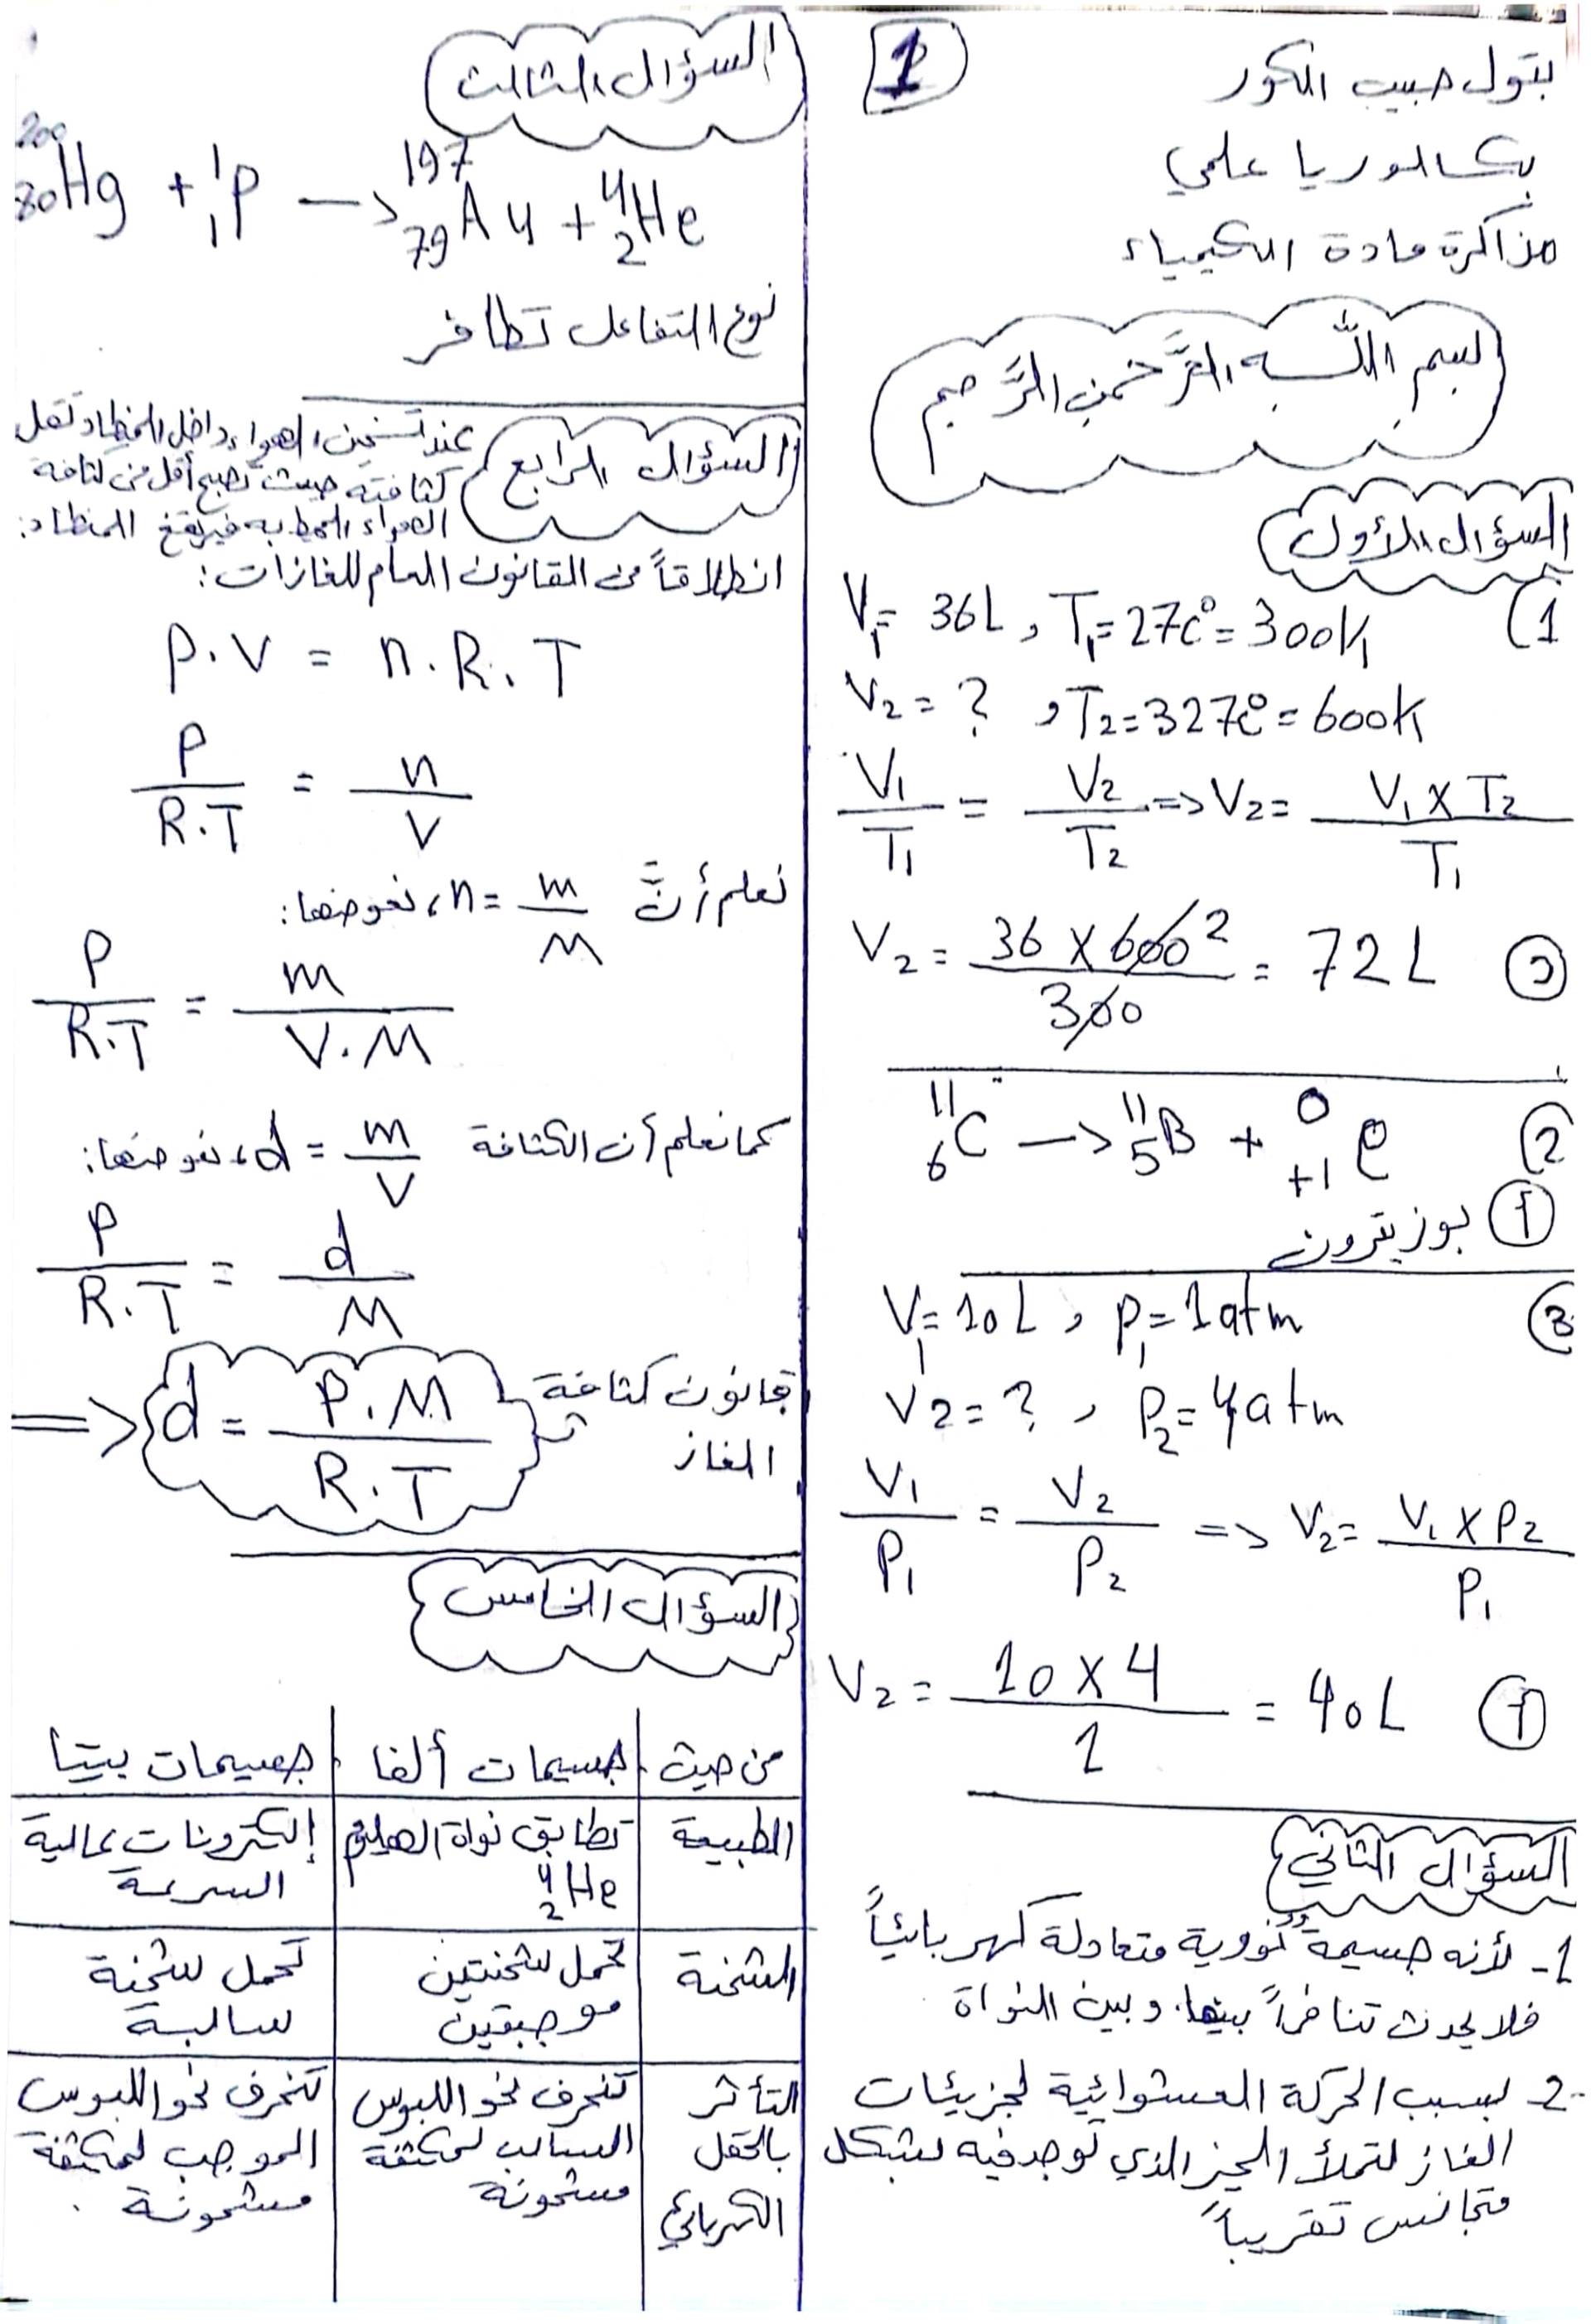 1
بتول حبيب الكور
بكالوريا علمي
مذاكرة مادة الكيمياء
بسم اللّه الرَّحمن الرَّحيم
السؤال الأول
(1
V₁= 36L , T₁=27c°= 300K
V₂ = ? , T₂=327c°= 600K
V₁/T₁ = V₂/T₂ => V₂= V₁ x T₂/T₁
V₂ = 36 x 600²/300 = 72 L
(2
¹¹₆C —> ¹¹₅B + ⁰₊₁e
بوزيترون
(3
V₁= 10L , P₁= 1atm
V₂ = ? , P₂= 4atm
V₁/P₁ = V₂/P₂ => V₂= V₁ x P₂/P₁
V₂ = 10 x 4/1 = 40L
السؤال الثاني
1- لأنه جسيمة نووية متعادلة كهربائياً
فلا يحدث تنافراً بينها وبين النواة
2- بسبب الحركة العشوائية لجزيئات
الغاز لتملأ الحيز الذي توجد فيه بشكل
متجانس تقريباً
السؤال الثالث
²⁰⁰₈₀Hg + ¹₁P —> ¹⁹⁷₇₉Au + ⁴₂He
نوع التفاعل تطافر
السؤال الرابع
عند تسخين الهواء داخل المنطاد تقل
كثافته حيث تصبح أقل من كثافة
الهواء المحيط به فيرتفع المنطاد:
انطلاقاً من القانون العام للغازات:
P.V = n.R.T
P/R.T = n/V
نعلم أنَّ n = m/M، نعوضها:
P/R.T = m/V.M
كما نعلم أن الكثافة d = m/V، نعوضها:
P/R.T = d/M
=> d = P.M/R.T قانون كثافة
الغاز
السؤال الخامس
من حيث | جسيمات ألفا | جسيمات بيتا
الطبيعة | تطابق نواة الهليوم | إلكترونات عالية
⁴₂He | السرعة
الشحنة | تحمل شحنتين | تحمل شحنة
موجبتين | سالبة
التأثر | تنحرف نحو اللبوس | تنحرف نحو اللبوس
بالحقل | السالب لمكثفة | الموجب لمكثفة
الكهربائي | مشحونة | مشحونة